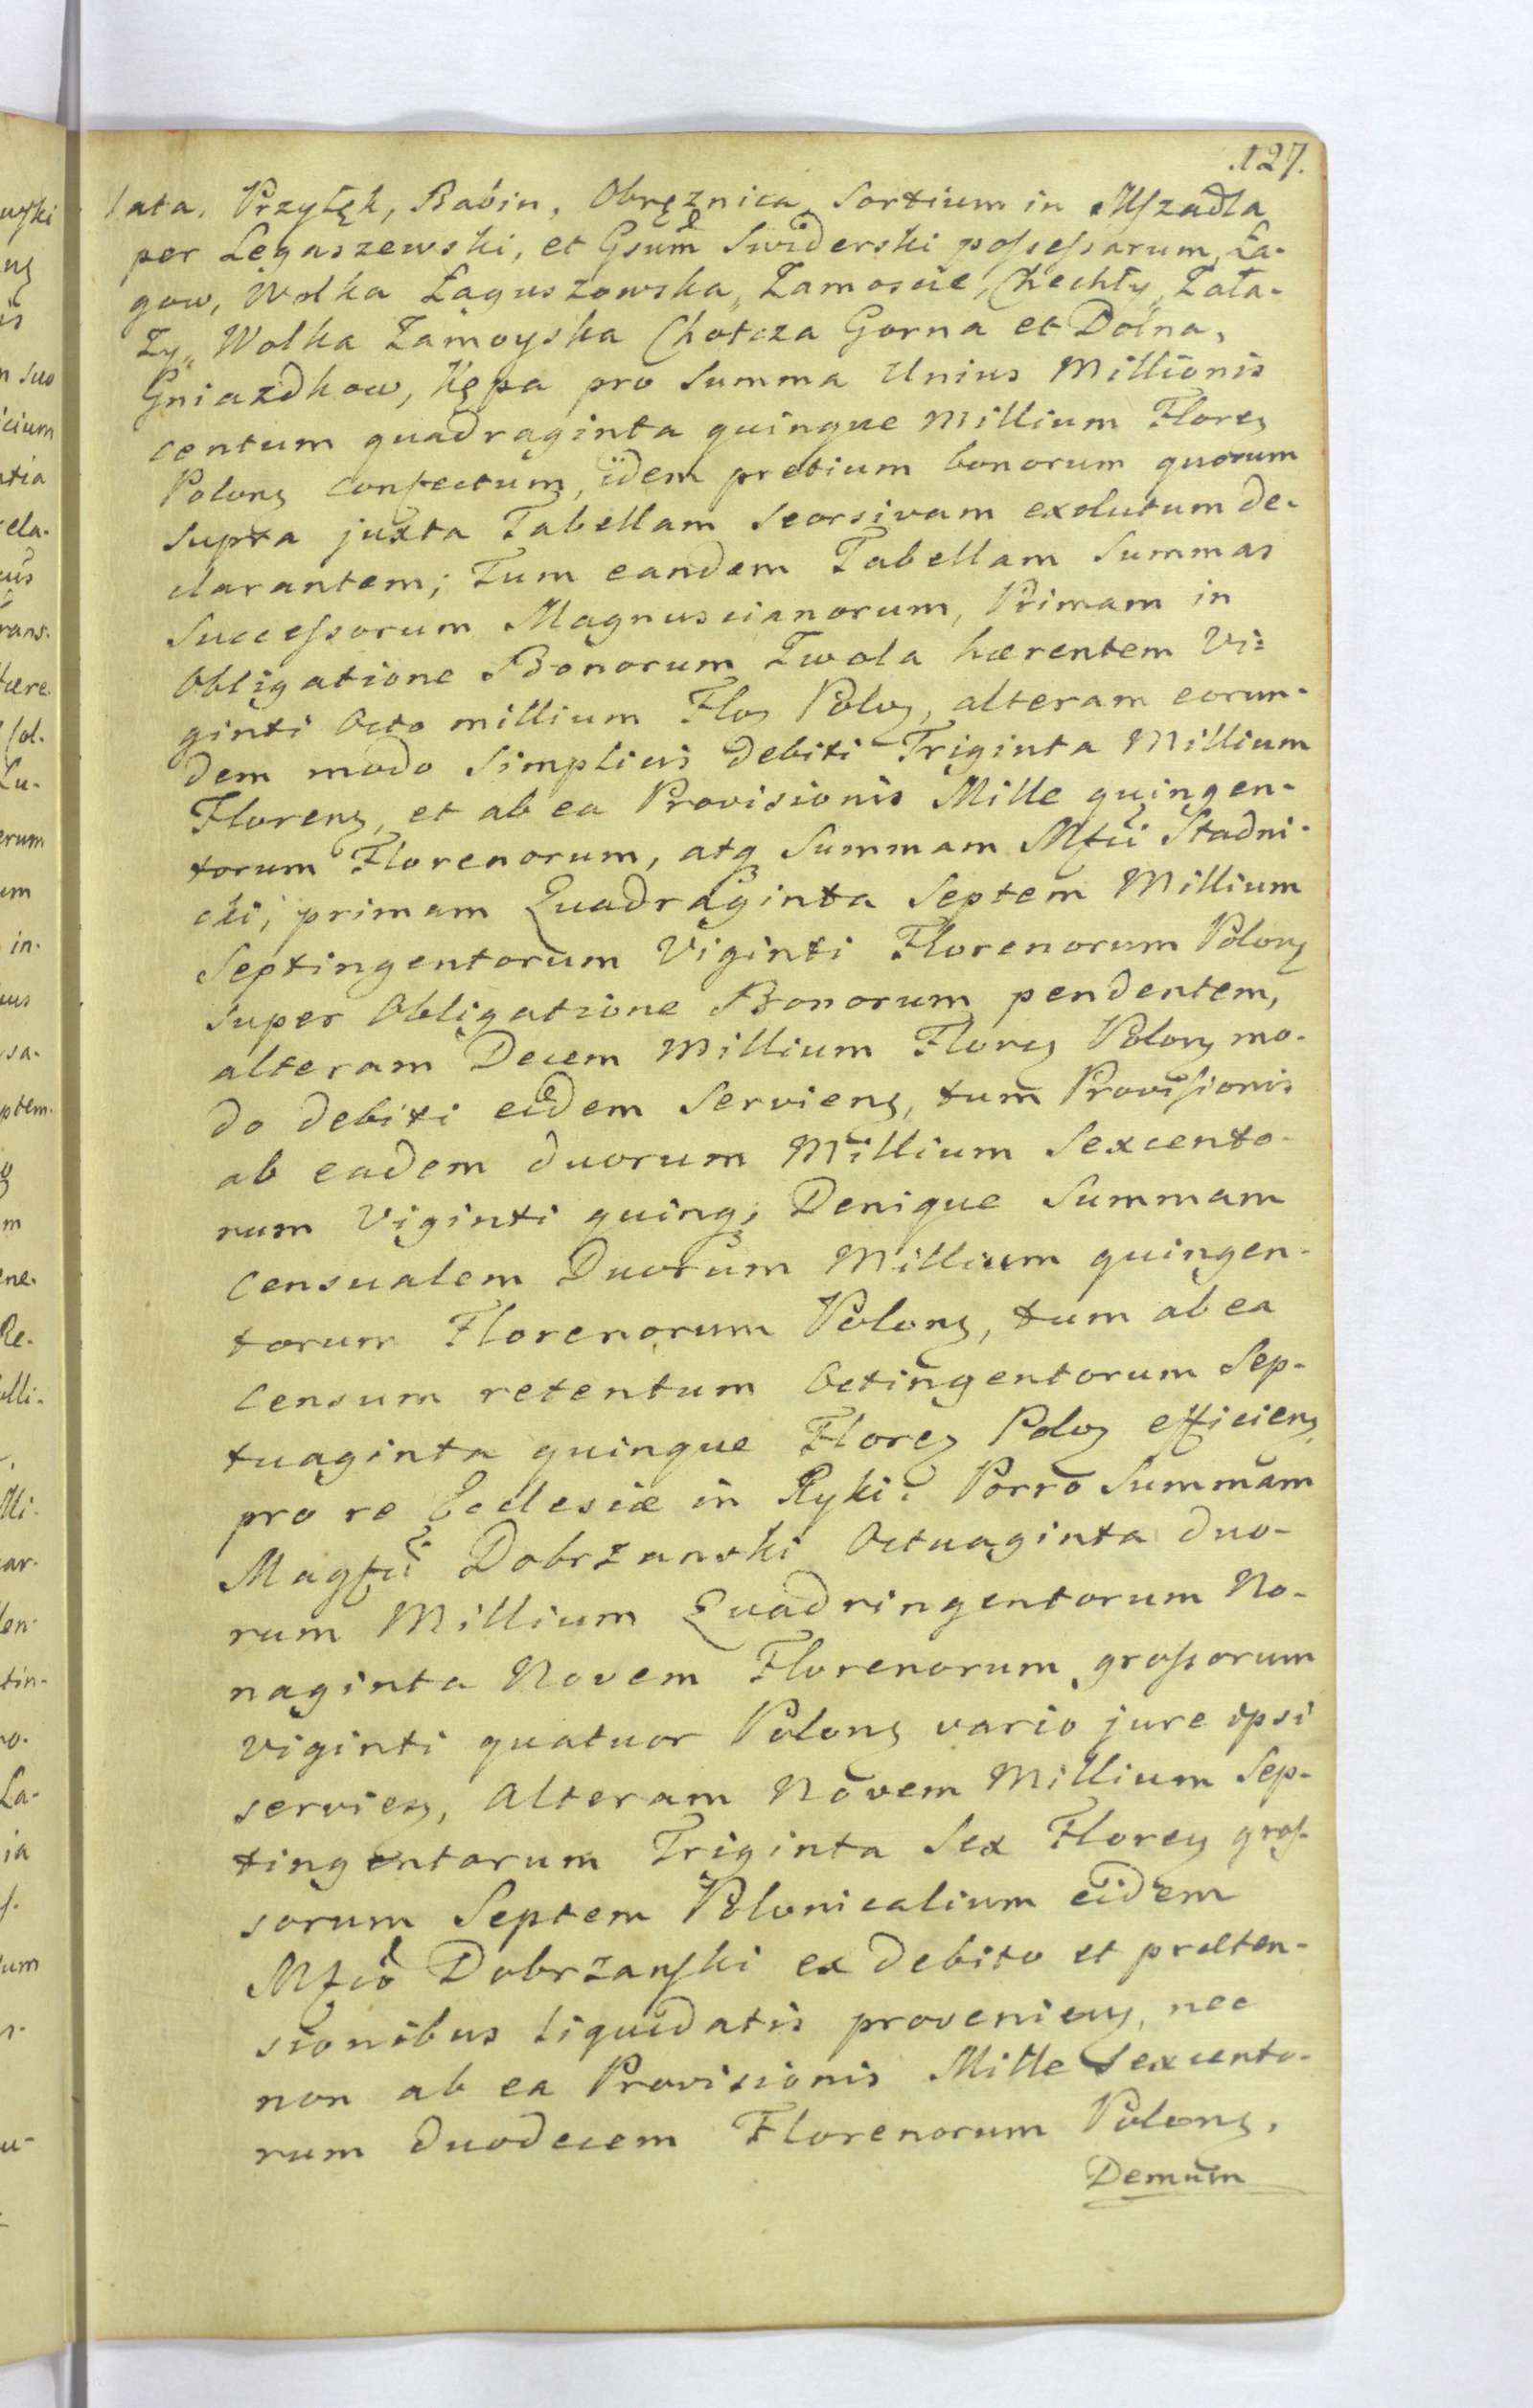 127.
lata, Przyłęk, Babin, Obręznica Sortium in Mszadla
per Legaszewski, et Gsum Swiderski possessarum, Ła-
gow, Wolka Łaguszowska, Zamoscie, Chechły, Zała-
zy, Wolka Zamoyska Chotcza Gorna et Dolna,
Gniazdkow, Kępa pro Summa Unius Millionis
centum quadraginta quinque Millium Floreꝫ
Polonꝫ confectum, idem pretium bonorum quorum
supra juxta Tabellam seorsivam exolutum de-
clarantem; Tum eandem Tabellam Summas
Successorum Magnuscianorum, Primam in
Obligatione Bonorum Zwola hærentem Vi-
ginti Octo millium Floꝫ Poloꝫ, alteram eorun-
dem modo Simplicis debiti Triginta Millium
Florenꝫ, et ab ea Provisionis Mille quingen-
torum Florenorum, atqꝫ Summam Mfci Stadni-
cki, primam Quadraginta Septem Millium
Septingentorum Viginti Florenorum Polonꝫ
super Obligatione Bonorum pendentem,
alteram Decem Millium Florenꝫ Polonꝫ mo-
do debiti eidem Servienꝫ, tum Provisionis
ab eadem duorum Millium Sexcento-
rum Viginti quinqꝫ; Denique Summam
Censualem Duorum Millium quingen-
torum Florenorum Polonꝫ, tum ab ea
Censum retentum Octingentorum Sep-
tuaginta quinque Floreꝫ Poloꝫ efficienꝫ,
pro re Ecclesiæ in Ryki. Porro Summam
Magfci Dobrzanski Octuaginta duo-
rum Millium Quadringentorum No-
naginta Novem Florenorum, grossorum
viginti quatuor Polonꝫ vario jure ipsi
servieꝫ, Alteram Novem Millium Sep-
tingentorum Triginta Sex Florenꝫ gros-
sorum Septem Polonicalium eidem
Mfco Dobrzanski ex debito et præten-
sionibus liquidatis provenienꝫ, nec
non ab ea Provisionis Mille Sexcento-
rum duodecem Florenorum Polonꝫ.
Demum